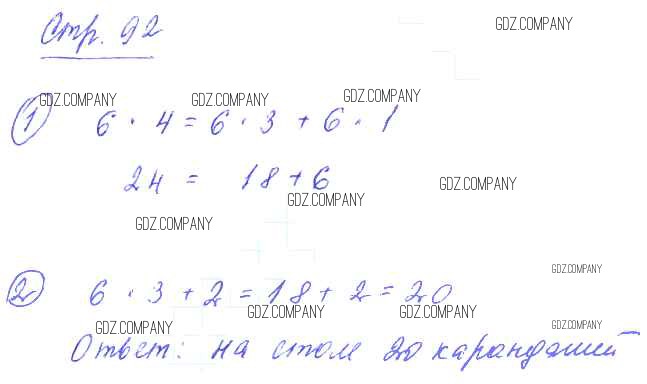 Стр. 92
GDZ.COMPANY
GDZ.COMPANY GDZ.COMPANY GDZ.COMPANY
1 6 · 4 = 6 · 3 + 6 · 1
24 = 18 + 6
GDZ.COMPANY
GDZ.COMPANY
GDZ.COMPANY
GDZ.COMPANY
2 6 · 3 + 2 = 18 + 2 = 20
GDZ.COMPANY GDZ.COMPANY
GDZ.COMPANY GDZ.COMPANY
Ответ: на столе 20 карандашей